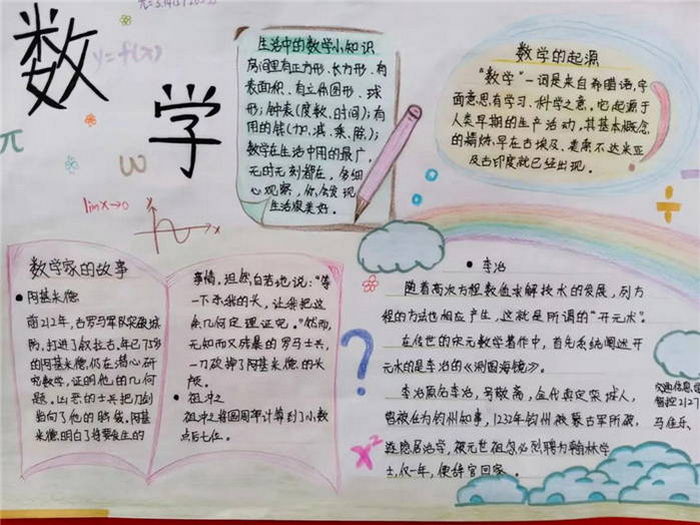 数学
y=f(x)
π
ω
lim x→0
y
x
生活中的数学小知识
房间里有正方形、长方形、有
表面积、有立体图形、球
形；钟表(度数、时间)；有
用的钱(加、减、乘、除)；
数学在生活中用的最广，
无时无刻都在，多细
心观察，你会发现
生活很美好。
数学的起源
"数学"一词是来自希腊语，字
面意思有学习、科学之意。它起源于
人类早期的生产活动，其基本概念
的精炼，早在古埃及、美索不达米亚
及古印度就已经出现。
÷
数学家的故事
•阿基米德
前212年，古罗马军队突破城
防，打进了叙拉古，年已75岁
的阿基米德，仍在潜心研
究数学，证明他的几何
题。凶恶的士兵把刀剑
指向了他的
阿基
米德明白了将要发生的
事情，坦然自若地说："等
一下杀我的头，让我把这
条几何定理证完。"然而，
无知而又残暴的罗马士兵，
一刀砍掉了阿基米德的头
颅。
•祖冲之
祖冲之将圆周率计算到了小数
点后七位。
?
x²
•李冶
随着高次方程数值求解技术的发展，列方
程的方法也相应产生，这就是所谓的"开元术"。
在传世的宋元数学著作中，首先系统阐述开
元术的是李冶的《测圆海镜》。
李冶原名李治，号敬斋，金代真定栾城人，
曾被任为钧州知事，1232年钧州被蒙古军所破，
遂隐居治学，被元世祖忽必烈聘为翰林学
士，仅一年，便辞官回家。
交通信息
智控2127
马佳乐